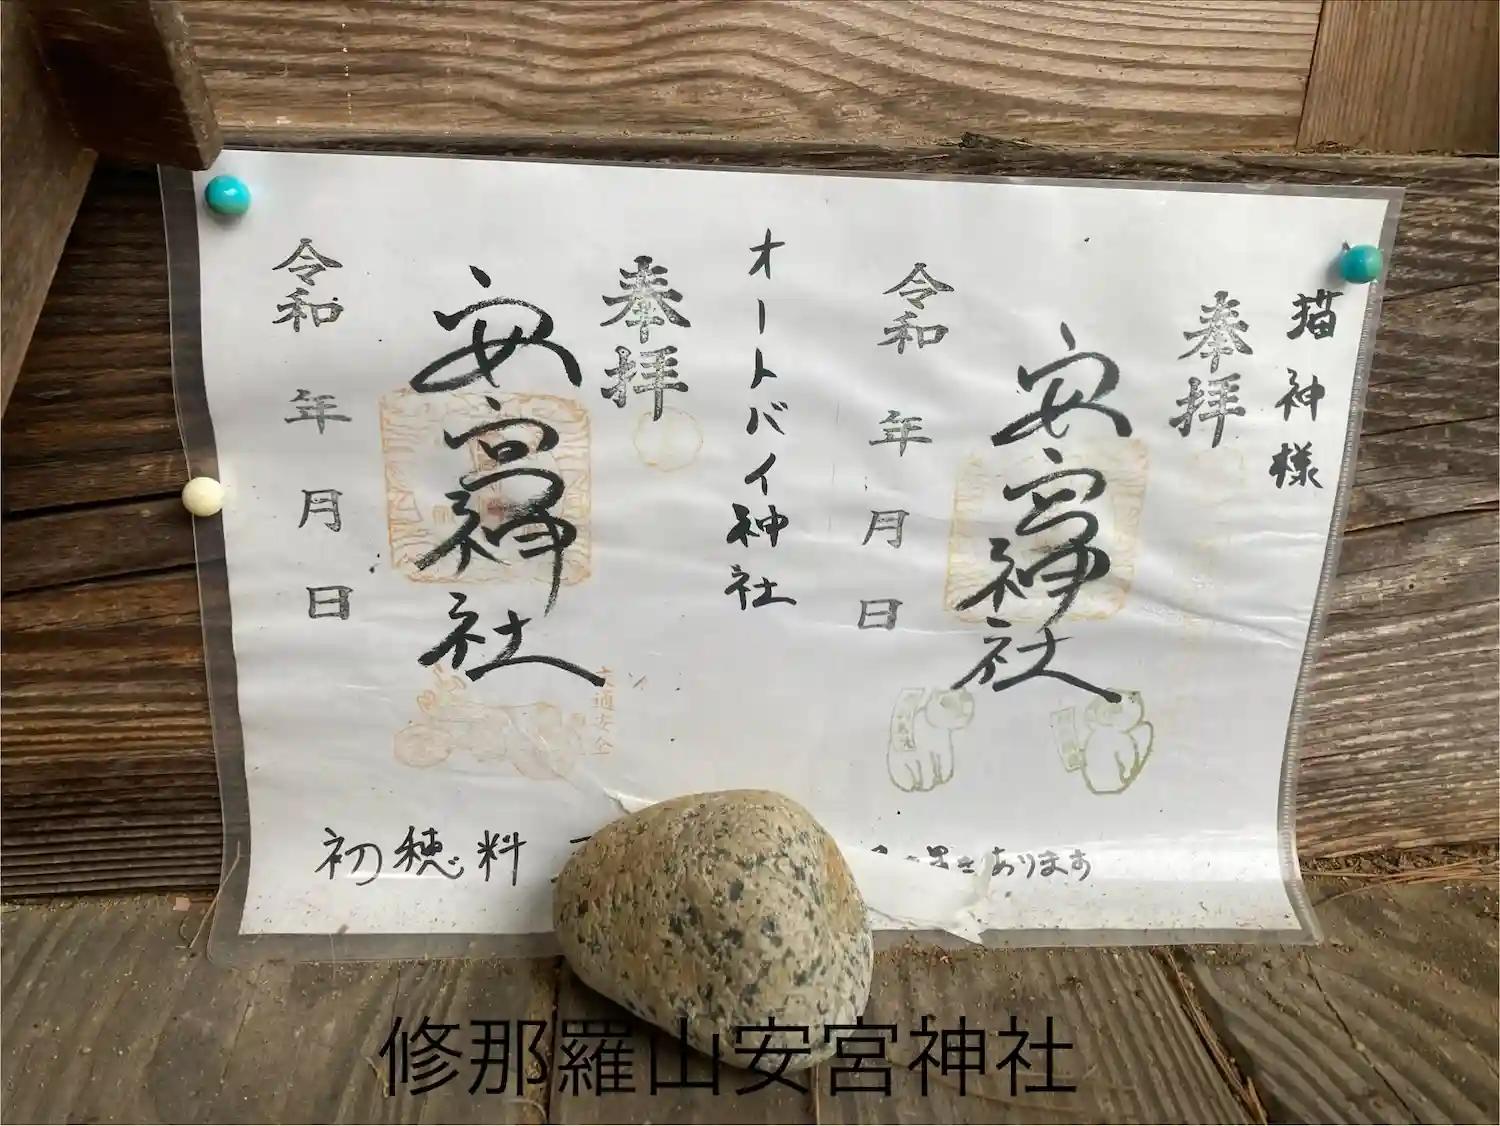 猫神様
奉拝
安宮神社
令和 年 月 日
オートバイ神社
奉拝
安宮神社
令和 年 月 日
交通安全
初穂料
あります
修那羅山安宮神社